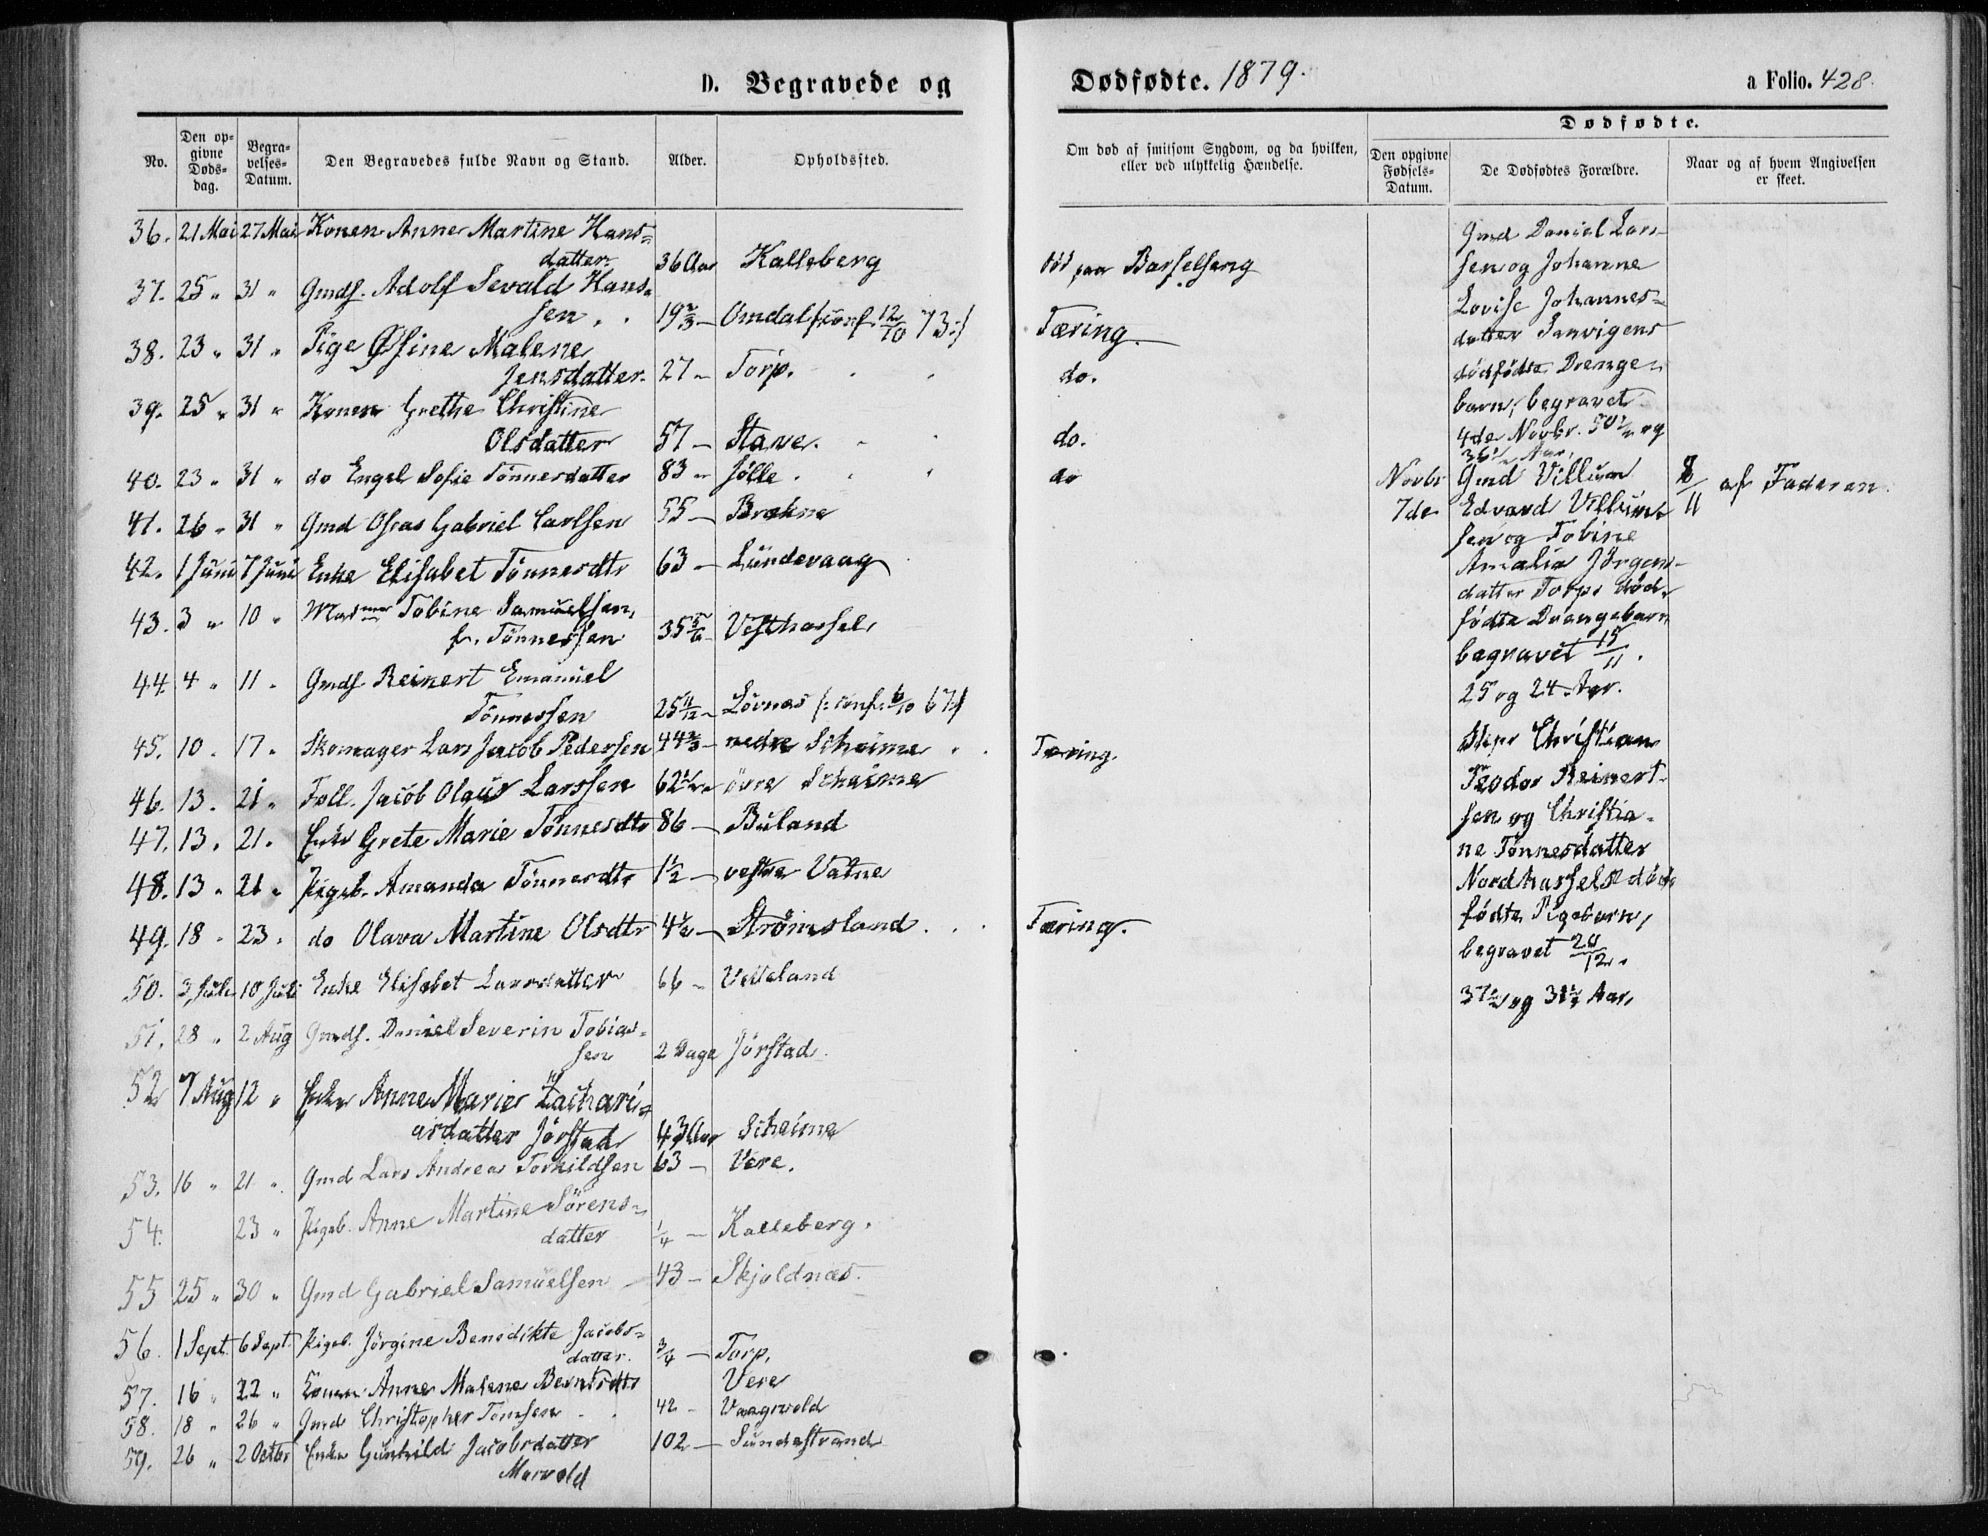 D. Begravede og Dødfødte. 1879. a Folio. 428.
No.
Den op-
givne
Døds-
dag.
Begra-
velses-
Datum.
Den Begravedes fulde Navn og Stand.
Alder.
Opholdssted.
Om død af smitsom Sygdom, og da hvilken,
eller ved ulykkelig Hændelse.
Dødfødte.
Den opgivne
Fødsels-
Datum.
De Dødfødtes Forældre.
Naar og af hvem Angivelsen
er skeet.
36. 21 Mai 27 Mai Konen Anne Martine Hans-
datter 36 Aar Kalleberg død paa Barselseng
37. 25 " 31 " Gmds. Adolf Sevald Hans-
sen 19 2/3 - Omdal /: conf. 12/10 73 :/ Tæring
38. 23 " 31 " Pige Øsine Malene
Jensdatter 27 - Torp. do.
39. 25 " 31 " Konen Grethe Christine
Olsdatter 57 - Stave. do.
40. 23 " 31 " do Engel Sofie Tønnesdatter 83 - Jølle do
41. 26 " 31 " Gmd Oseas Gabriel Carlsen 55 - Brækne
42. 1 Juni 7 Juni Enke Elisabet Tønnesdtr 63 - Lundevaag
43. 3 " 10 " Tobine Samuelsen,
f. Tønnessen 35 5/6 - Vesthassel
44. 4 " 11 " Gmds. Reinert Emanuel
Tønnessen 25 11/12 - Løvnæs /: conf. 6/10 67 :/
45. 10 " 17 " Skomager Lars Jacob Pedersen 44 2/3 - nedre Scheime Tæring.
46. 13 " 21 " Føll. Jacob Olaus Larssen 62 1/2 - øvre Scheime
47. 13 " 21 " Enke Grete Marie Tønnesdtr 86 - Buland
48. 13 " 21 " Pigeb. Amanda Tønnesdtr 1 1/2 - vestre Vatne
49. 18 " 23 " do Olava Martine Olsdtr 4 1/2 - Strømsland Tæring.
50. 3 Juli 10 Juli Enke Elisabet Larsdatter 66 - Vetteland
51. 28 " 2 Aug Gmds. Daniel Severin Tobias-
sen 2 Dage Jørstad
52 7 Aug 12 " Enke Anne Marie Zachari-
asdatter Jørstad 43 Aar Scheime
53. 16 " 21 " Gmd Lars Andreas Torkildsen 63 - Vere.
54. 23 " Pigeb. Anne Martine Sørens-
datter 1/4 - Kalleberg.
55 25 " 30 " Gmd Gabriel Samuelsen 43 - Skjoldnæs.
56. 1 Sept. 6 Sept. Pigeb. Jørgine Benedikte Jacobs-
datter. 3/4 - Torp,
57. 16 " 22 " Konen Anne Malene Berntsdtr Vere
58. 18 " 26 " Gmd Christopher Tomsen 42 - Vaagsvold
59. 26 " 2 Octbr Enke Gunhild Jacobsdatter 102 - Sundestrand
Marvold
Gmd Daniel Lars-
sen og Johanne
Lovise Johannes-
datter Sanvigens
dødfødte Drenge-
barn, begravet
4de Novbr. 50 1/2 og
36 1/2 Aar.
Novbr Gmd Villum 8/11 af Faderen.
7de Edvard Villum-
sen og Tobine
Amalia Jørgens-
datter Torps død-
fødte Drengebarn
begravet 15/11.
25 og 24 Aar.
Skipr Christian
Teodor Reinert-
sen og Christia-
ne Tønnesdatter
Nordhassels død-
fødte Pigebarn,
begravet 20/12.
37 1/2 og 31 1/2 Aar,